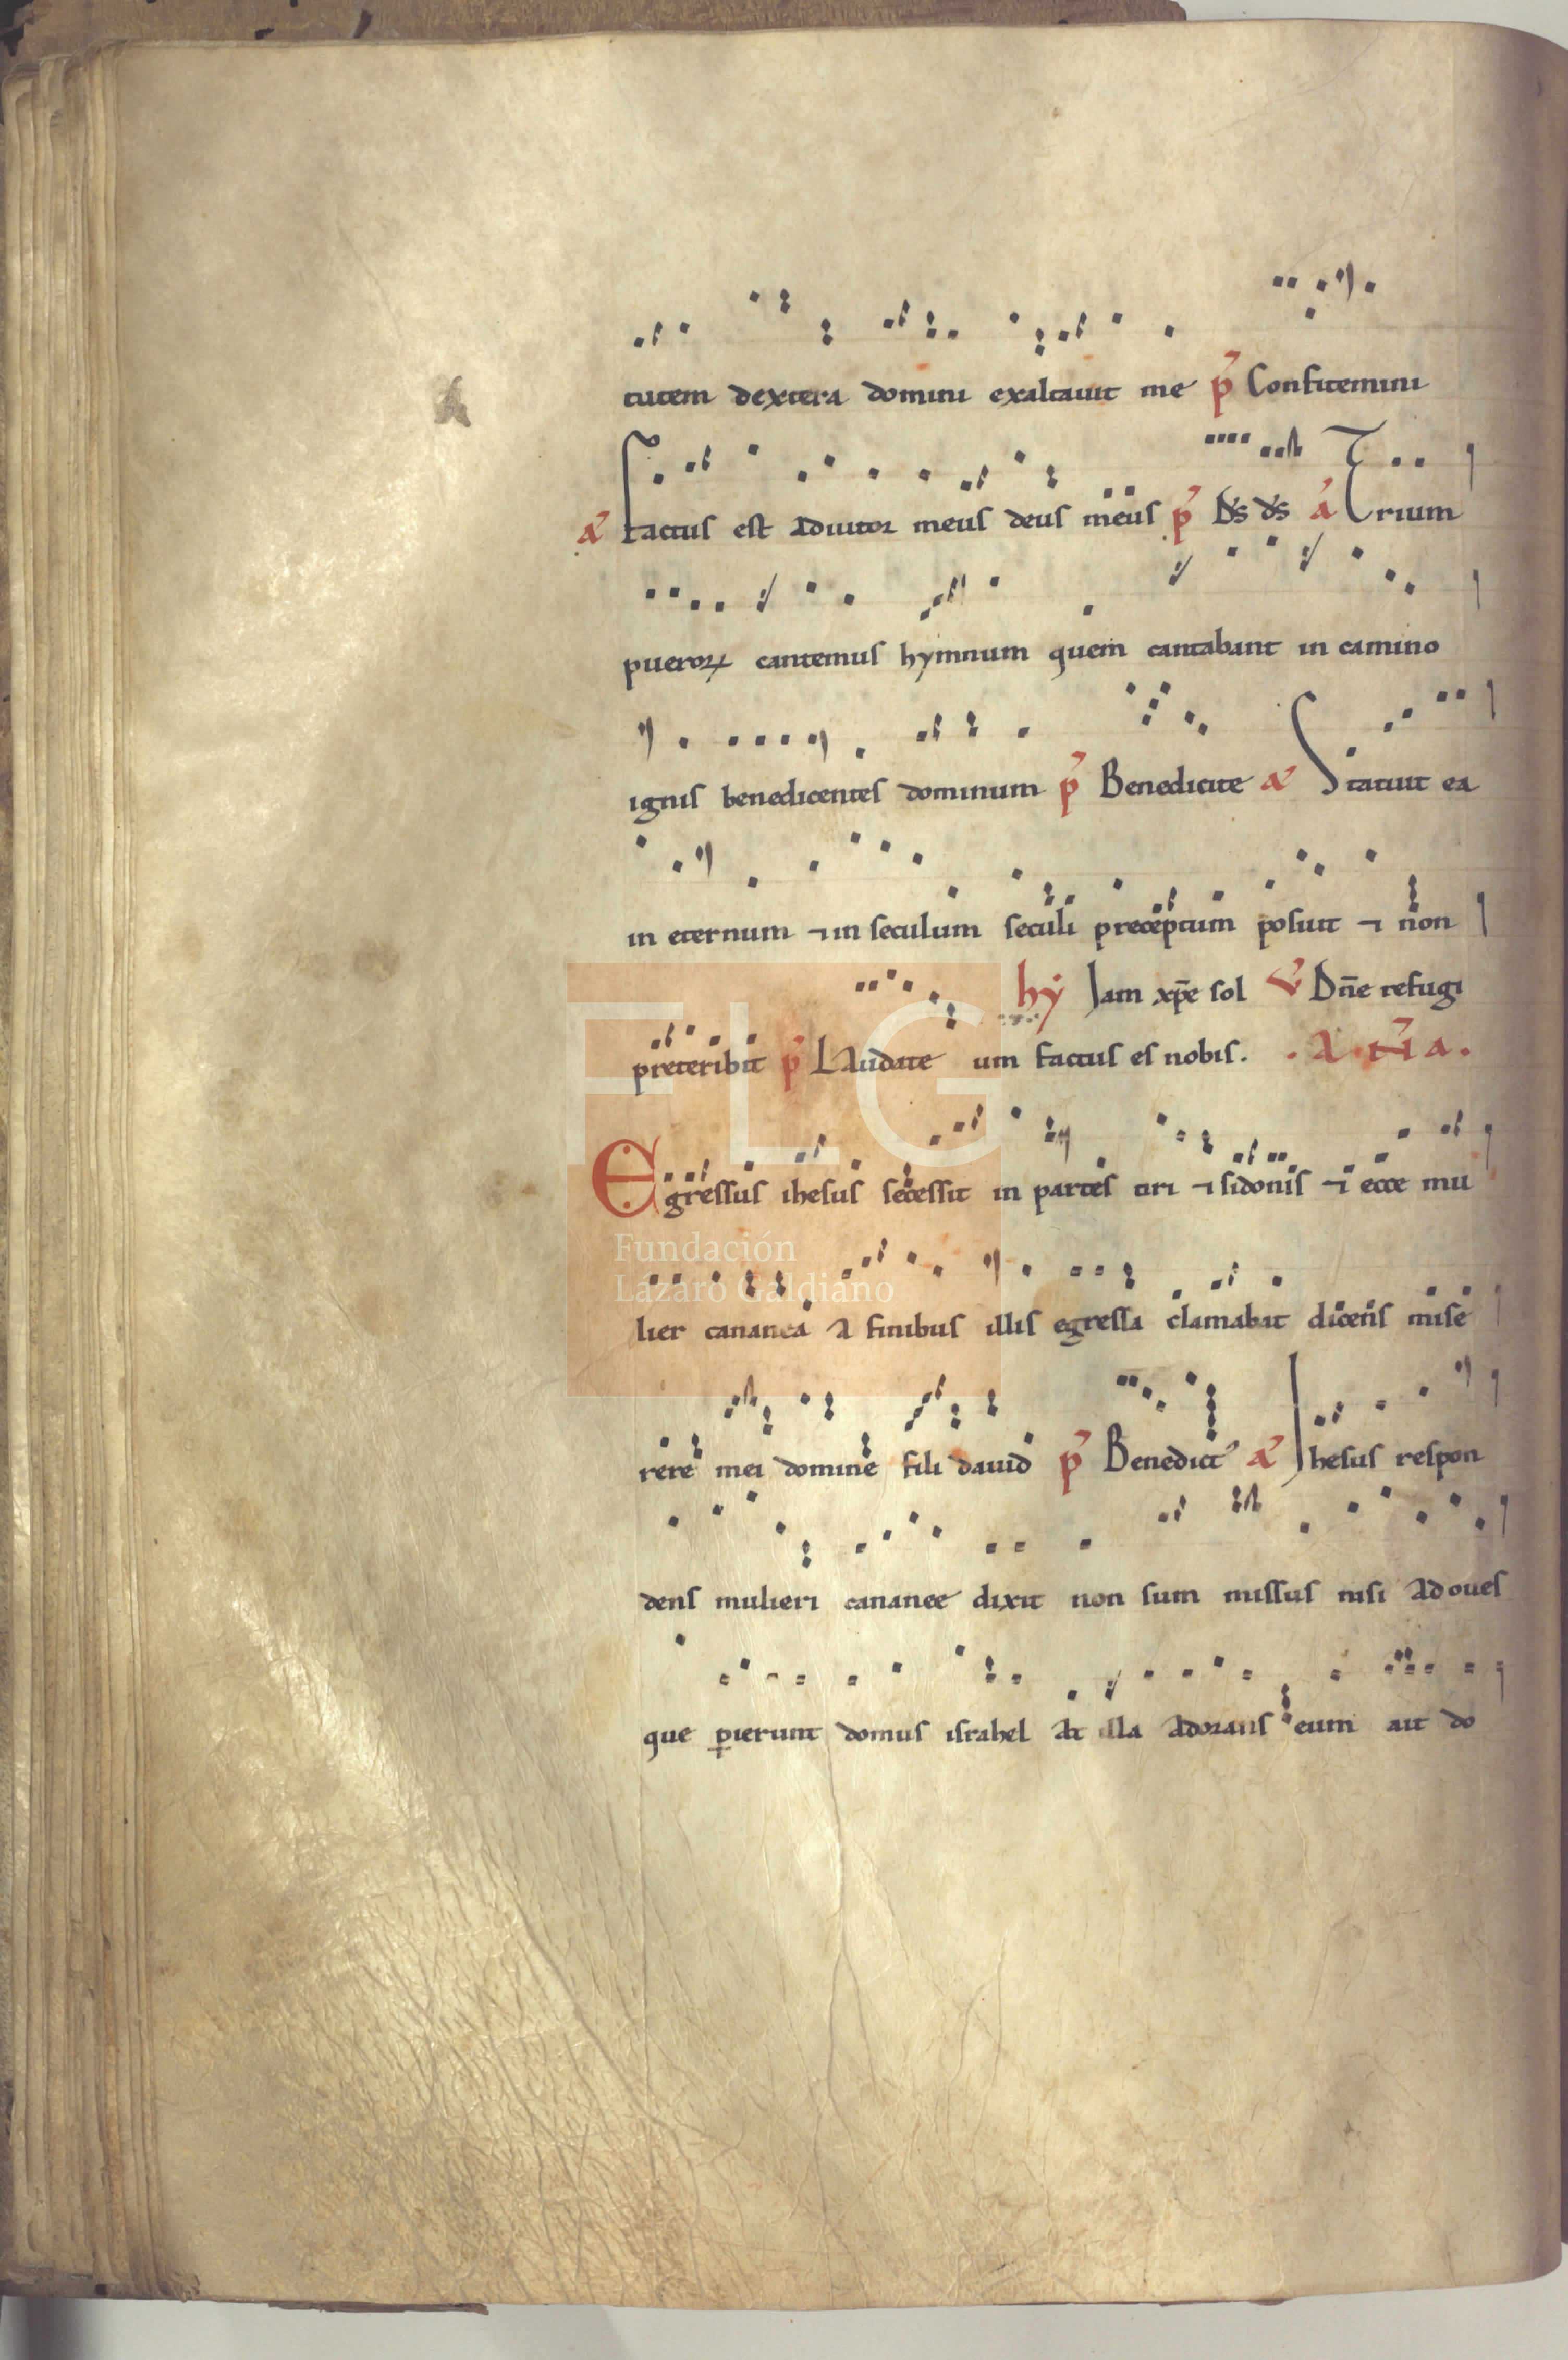 tutem dextera domini exaltauit me p̃ Confitemini
a᷉ factus est adiutor meus deus meus p̃ D̄s d̄s a᷉ Trium
pueroꝝ cantemus hymnum quem cantabant in camino
ignis benedicentes dominum p̃ Benedicite a᷉ Statuit ea
in eternum ⁊ in seculum seculi preceptum posuit ⁊ non
hy Iam xp̄e sol V̄ Dn̄e refugi
preteribit p̃ Laudate um factus es nobis. . A Ñ A .
Egressus ihesus secessit in partes tiri ⁊ sidonis ⁊ ecce mu
Fundación
Lázaro Galdiano
lier cananea a finibus illis egressa clamabat dicens mise
rere mei domine fili dauid p̃ Benedict᾿ a᷉ Ihesus respon
dens mulieri cananee dixit non sum missus nisi ad oues
que ꝑierunt domus israhel At illa adorans eum ait do
FLG